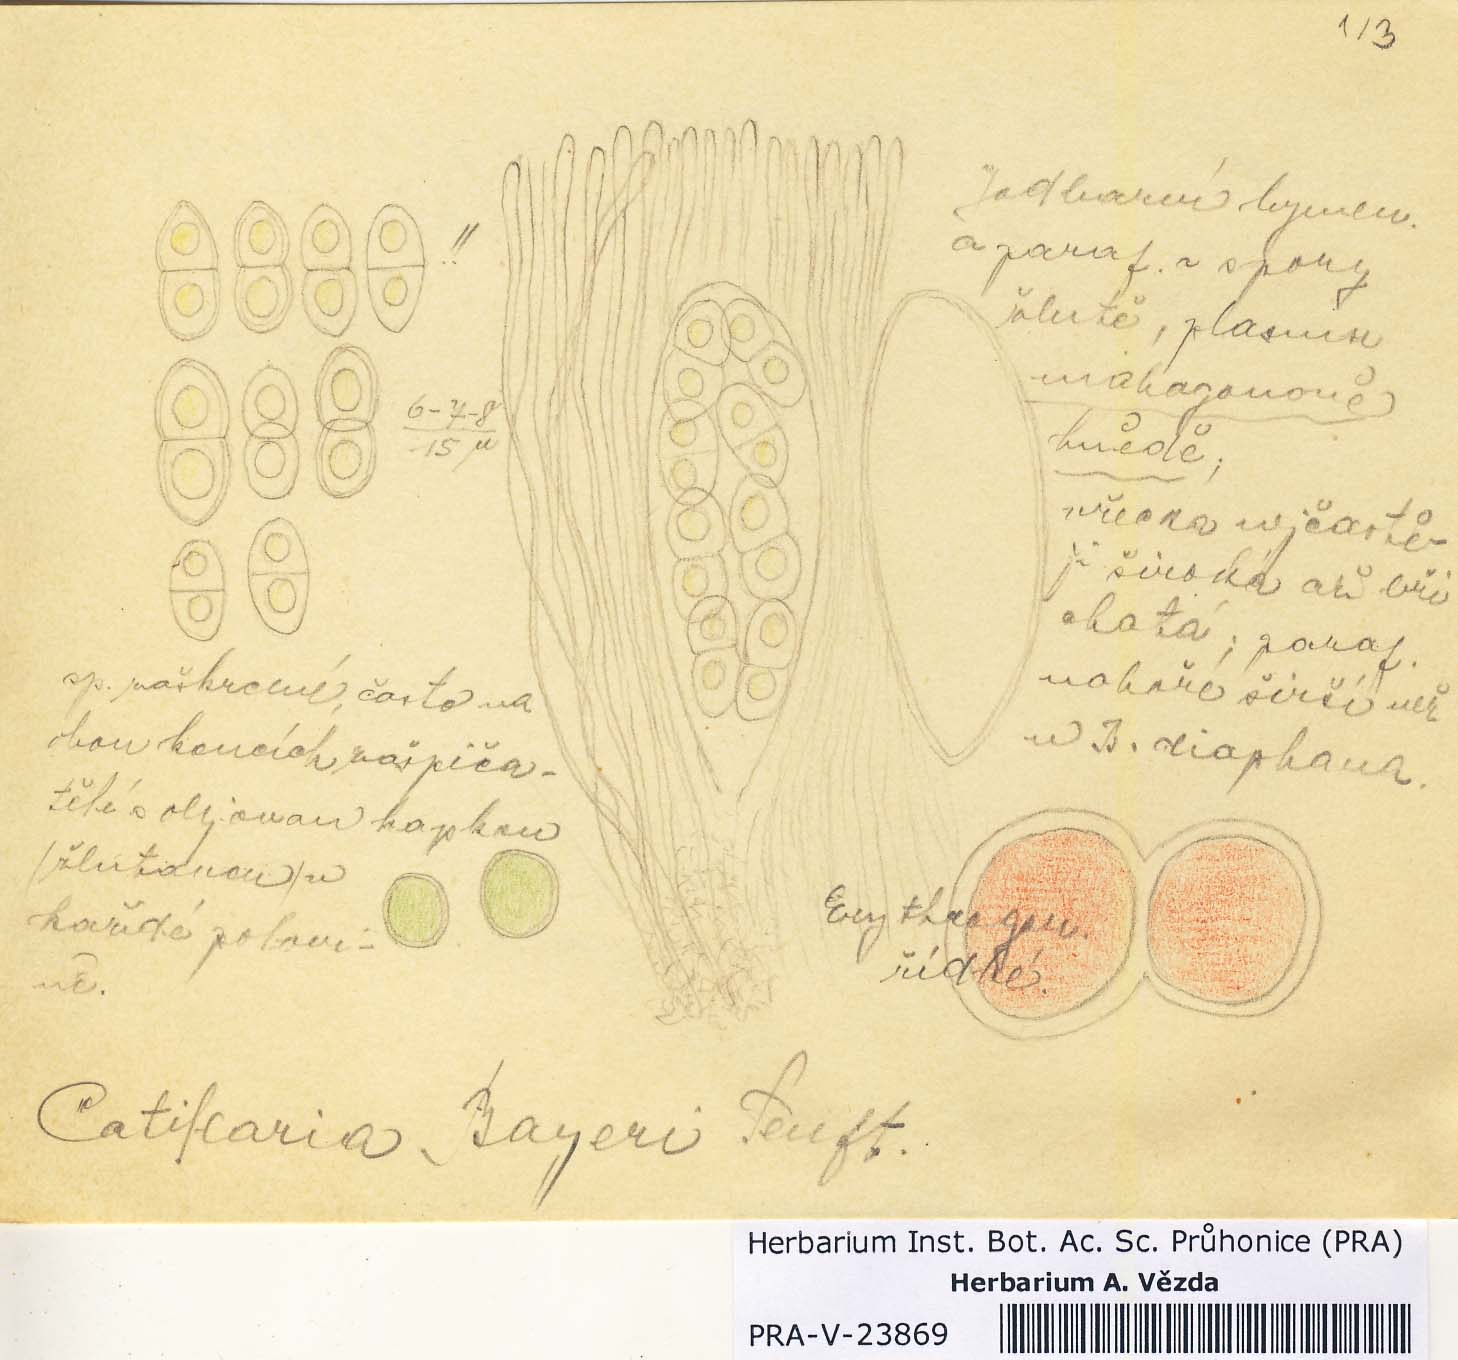 1/3
Jod barví hymen.
a paraf. a spory
žlutě, plasmu
mahagonově
hnědě;
vřecka nejčastě-
ji široká až bři
chatá; paraf.
nahoře širší než
u B. diaphana.
!!
6-7-8
15 µ
sp. zaškrcené, často na
obou koncích zašpiča-
tělé s olejovou kapkou
(žlutavou) v
každé polovi-
ně.
Erythrogon.
řídké.
Catillaria Bayeri Servít.
Herbarium Inst. Bot. Ac. Sc. Průhonice (PRA)
Herbarium A. Vězda
PRA-V-23869